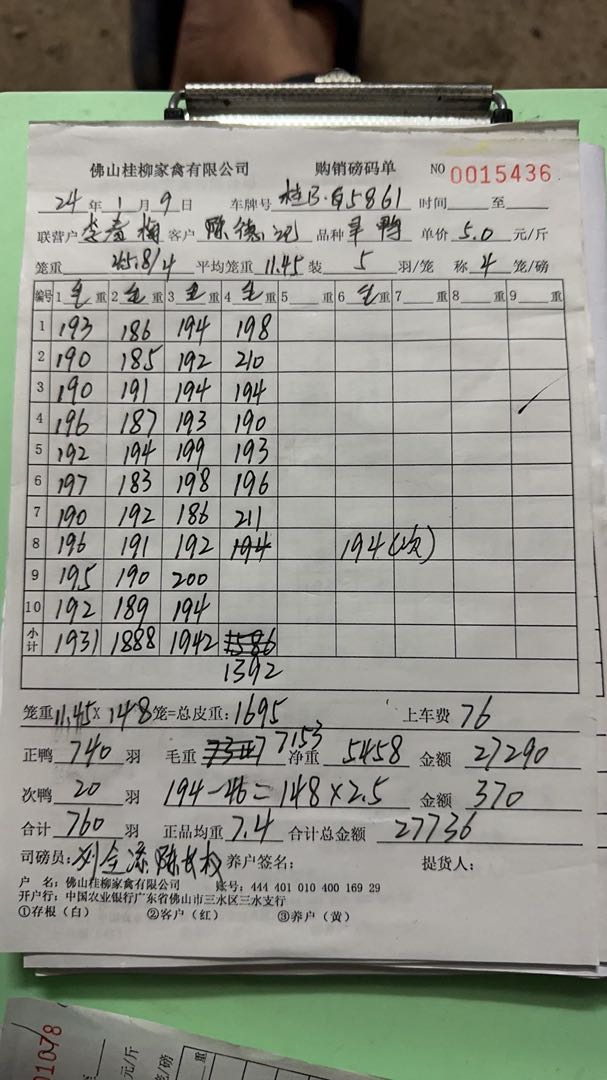 佛山桂柳家禽有限公司 购销磅码单 NO 0015436
24 年 1 月 9 日 车牌号 桂B·Q5861 时间 至
联营户 李春梅 客户 陈德 品种 旱鸭 单价 5.0 元/斤
笼重 45.8/4 平均笼重 11.45 装 5 羽/笼 称 4 笼/磅
编号 1 毛 重 2 毛 重 3 毛 重 4 毛 重 5 重 6 毛 重 7 重 8 重 9 重
1 193 186 194 198
2 190 185 192 210
3 190 191 194 194
4 196 187 193 190
5 192 194 199 193
6 197 183 198 196
7 190 192 186 211
8 196 191 192 194 194(次)
9 195 190 200
10 192 189 194
小计 1931 1888 1942 1586
1392
笼重 11.45 × 148 笼=总皮重: 1695 上车费 76
正鸭 740 羽 毛重 7347 7153 净重 5458 金额 27290
次鸭 20 羽 194-46=148×2.5 金额 370
合计 760 羽 正品均重 7.4 合计总金额 27736
司磅员: 养户签名: 提货人:
户 名: 佛山桂柳家禽有限公司 账号: 444 401 010 400 169 29
开户行: 中国农业银行广东省佛山市三水区三水支行
①存根（白） ②客户（红） ③养户（黄）
01078
元/斤
笼/磅
重